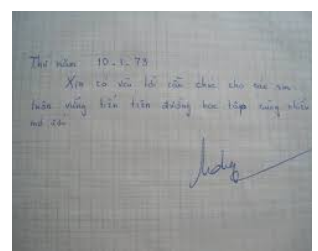 Thứ năm 10.5.73
Xin có vài lời cầu chúc cho các em
luôn vững tiến trên đường học tập cùng nhiều